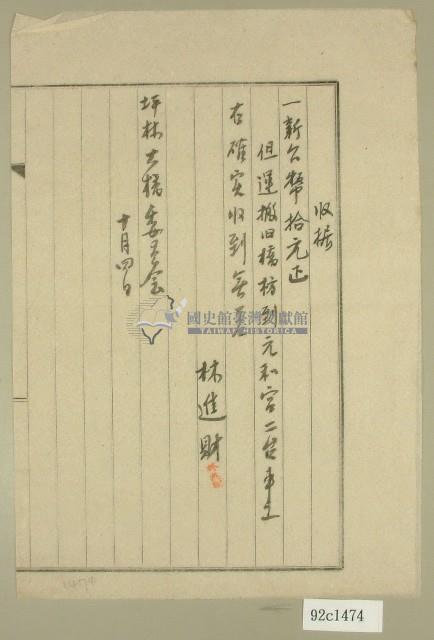 收据
一新台幣拾元正
但運搬旧橋枋到元和宮二台車工
右確实收到無
林進財
坪林大橋委員会
十月四日
國史館臺灣文獻館
TAIWAN HISTORICA
1474
92c1474